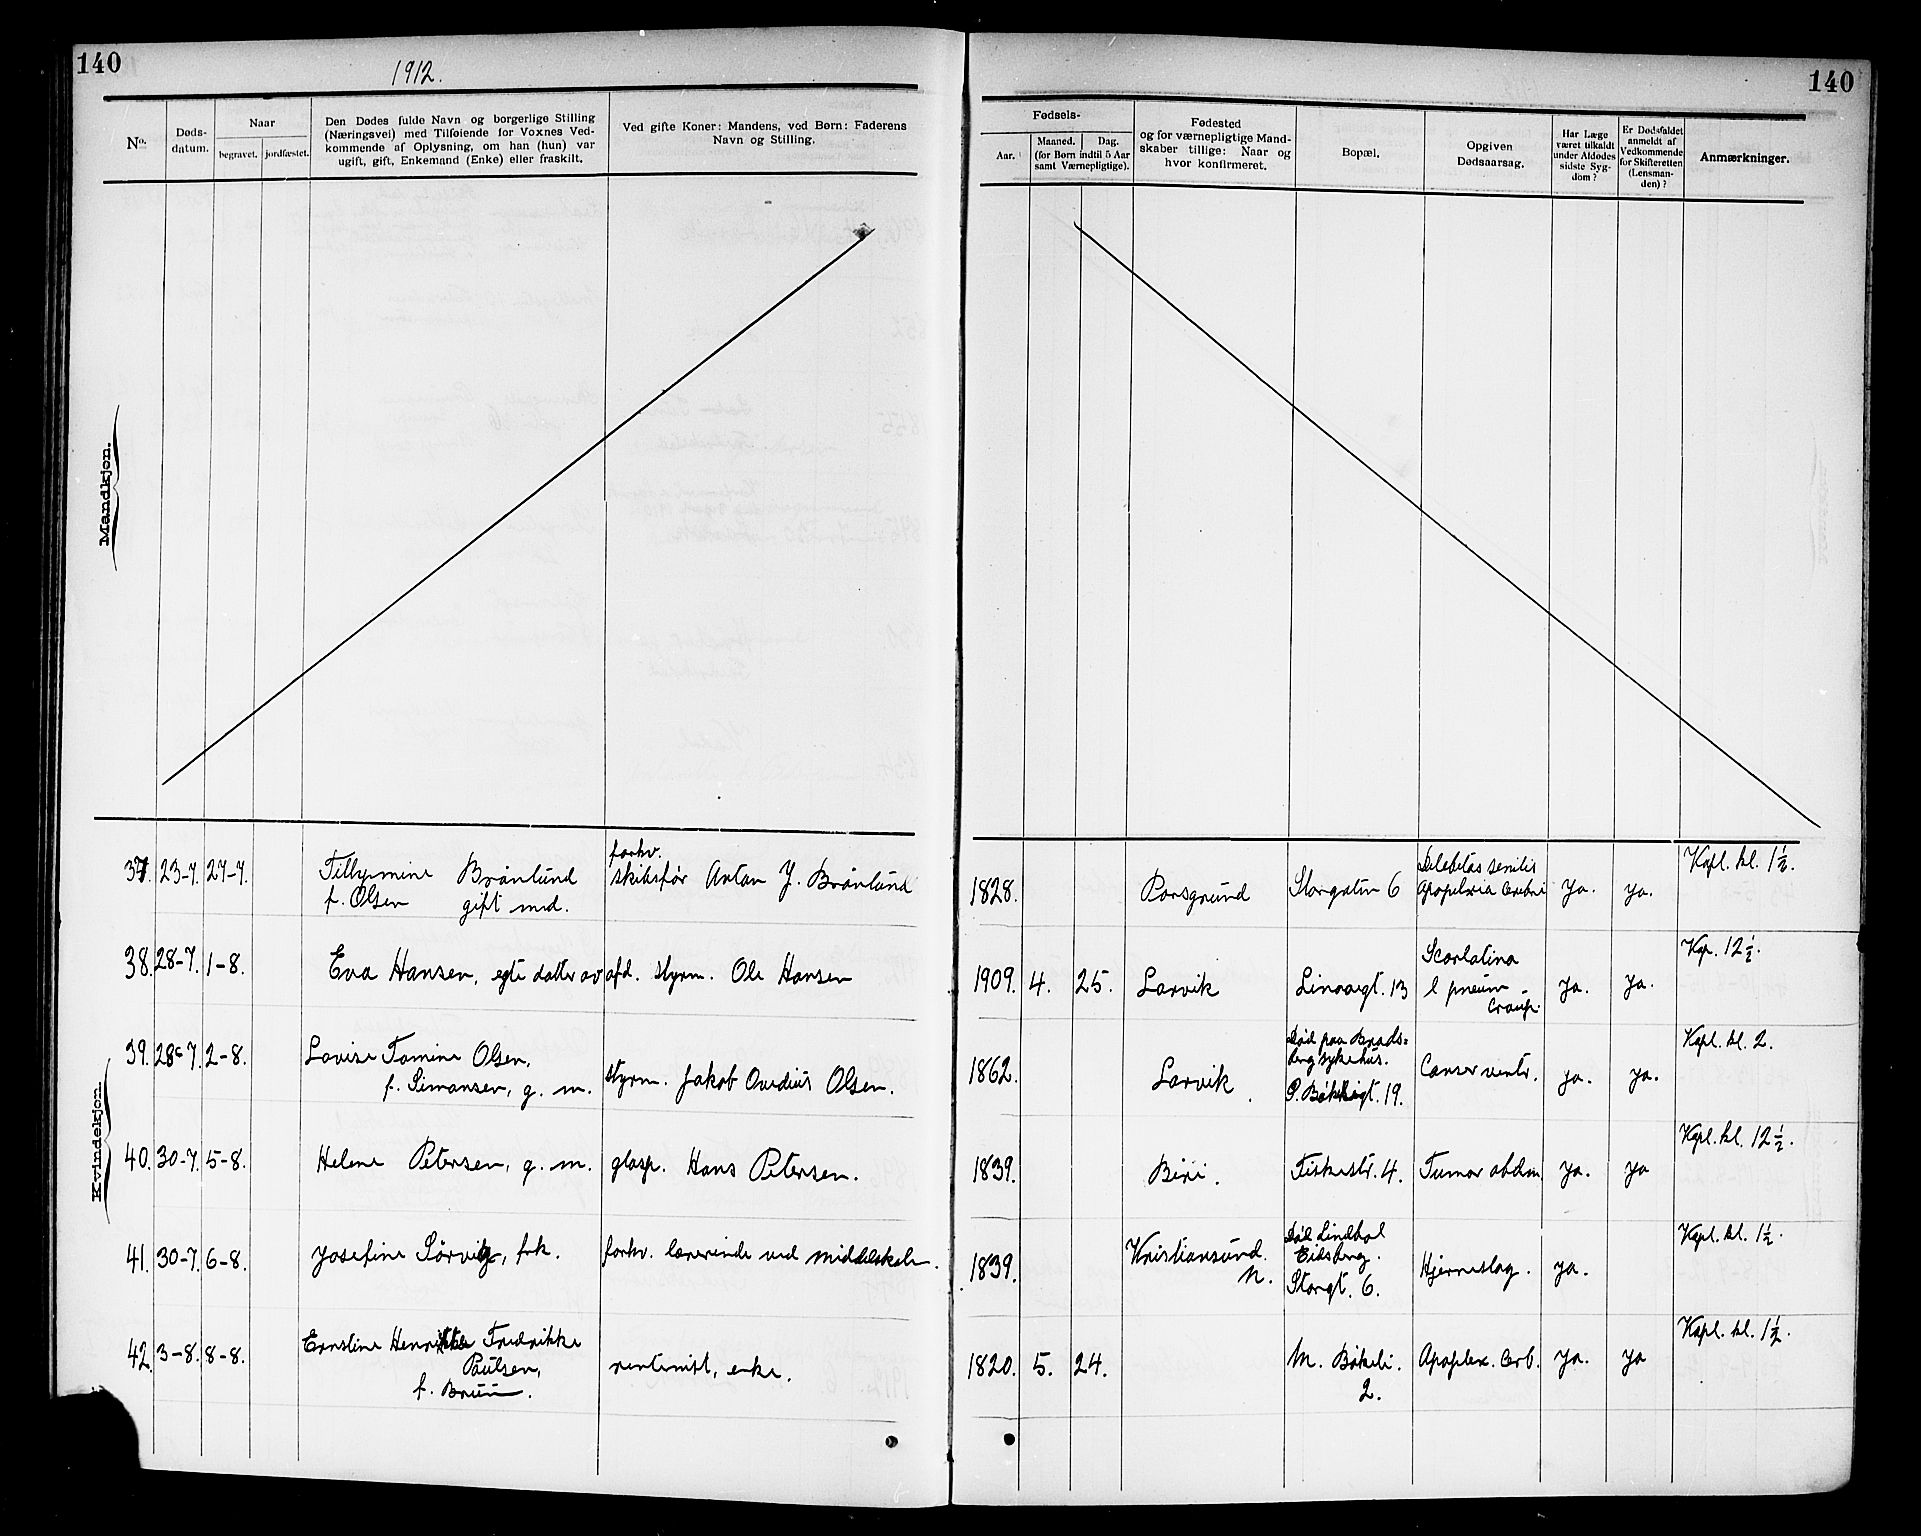 140
1912.
140
No.
Døds-
datum.
Naar
begravet. jordfæstet.
Den Dødes fulde Navn og borgerlige Stilling
(Næringsvei) med Tilføiende for Voxnes Ved-
kommende af Oplysning, om han (hun) var
ugift, gift, Enkemand (Enke) eller fraskilt.
Ved gifte Koner: Mandens, ved Børn: Faderens
Navn og Stilling.
Fødsels-
Aar. Maaned. Dag.
(for Børn indtil 5 Aar
samt Værnepligtige).
Fødested
og for værnepligtige Mand-
skaber tillige: Naar og
hvor konfirmeret.
Bopæl.
Opgiven
Dødsaarsag.
Har Læge
været tilkaldt
under Afdødes
sidste Syg-
dom?
Er Dødsfaldet
anmeldt af
Vedkommende
for Skifteretten
(Lensman-
den)?
Anmærkninger.
Mandkjøn.
Kvindekjøn.
37. 23-7. 27-7.
Brönlund
f. Olsen gift med.
forhv.
skibsfør Anton J. Brönlund
1828. Porsgrund Storgaten 6
Debilitas senilis
Apoplexia Cerebri
ja. ja. Kapl. kl. 1½.
38. 28-7. 1-8. Eva Hansen, egte datter av afd. styrm. Ole Hansen
1909. 4. 25. Larvik Linaaegt. 13
Scarlatina
& pneum
Croup.
ja. ja. Kap. 12½.
39. 28-7. 2-8. Lovise Tomine Olsen,
f. Simonsen, g. m. styrm. Jakob Ovedius Olsen.
1862. Larvik
Død paa Brads-
berg sykehus.
19.
Cancer ventr. ja. ja. Kapl. kl. 2.
40. 30-7. 5-8. Helene Petersen, g. m. glasp. Hans Petersen.
1839. Biri. Fiskestr. 4. Tumor abdom ja. ja Kapl. kl. 12½.
41. 30-7. 6-8. Josefine Sørvig, frk. forhv. lærerinde ved middelskolen.
1839. Kristiansund
N.
Død Lindhol
Eidsberg.
Storgt. 6.
Hjerneslag. ja. Kapl. kl. 1½.
42. 3-8. 8-8. Ernstine Henrikke Fredrikke
Paulsen,
f. Bruun.
rentenist, enke.
1820. 5. 24. M. Bökeli.
2.
Apoplex. Cerb. ja. ja Kapl. kl. 1½.